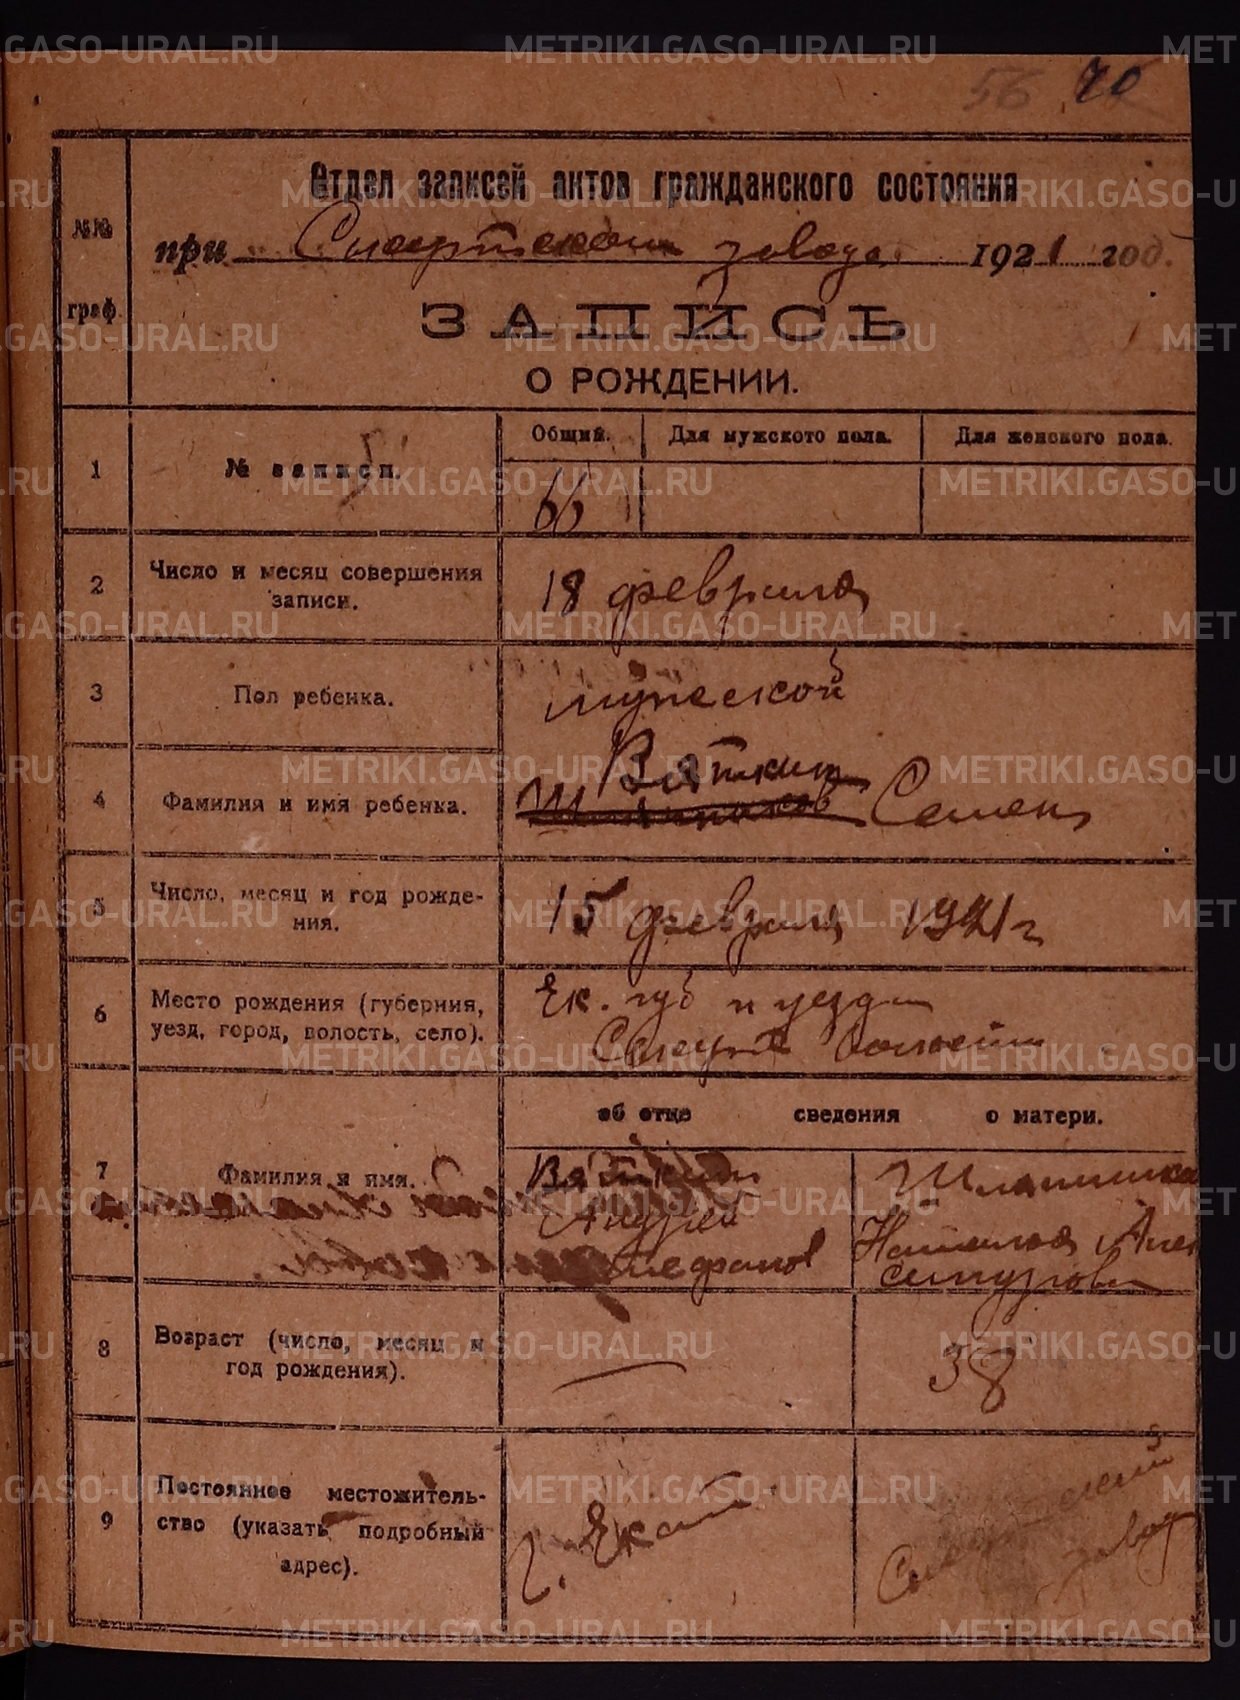 METRIKI.GASO-URAL.RU
56 70
Отдел записей актов гражданского состояния
№№ граф.
при Сысертском заводе 1921 год.
ЗАПИСЬ
О РОЖДЕНИИ.
Общий. Для мужского пола. Для женского пола.
1 № записи. 66
2 Число и месяц совершения
записи. 18 февраля
3 Пол ребенка. мужской
Вяткин
4 Фамилия и имя ребенка. Семен
5 Число, месяц и год рожде-
ния. 15 февраля 1921 г
6 Место рождения (губерния,
уезд, город, волость, село). Ек. губ и уезда
об отце сведения о матери.
7 Фамилия и имя. Вяткин
Андрей
Наталья
8 Возраст (число, месяц и
год рождения). — 38
9 Постоянное местожитель-
ство (указать подробный
адрес). г. Екат Сысертский
завод